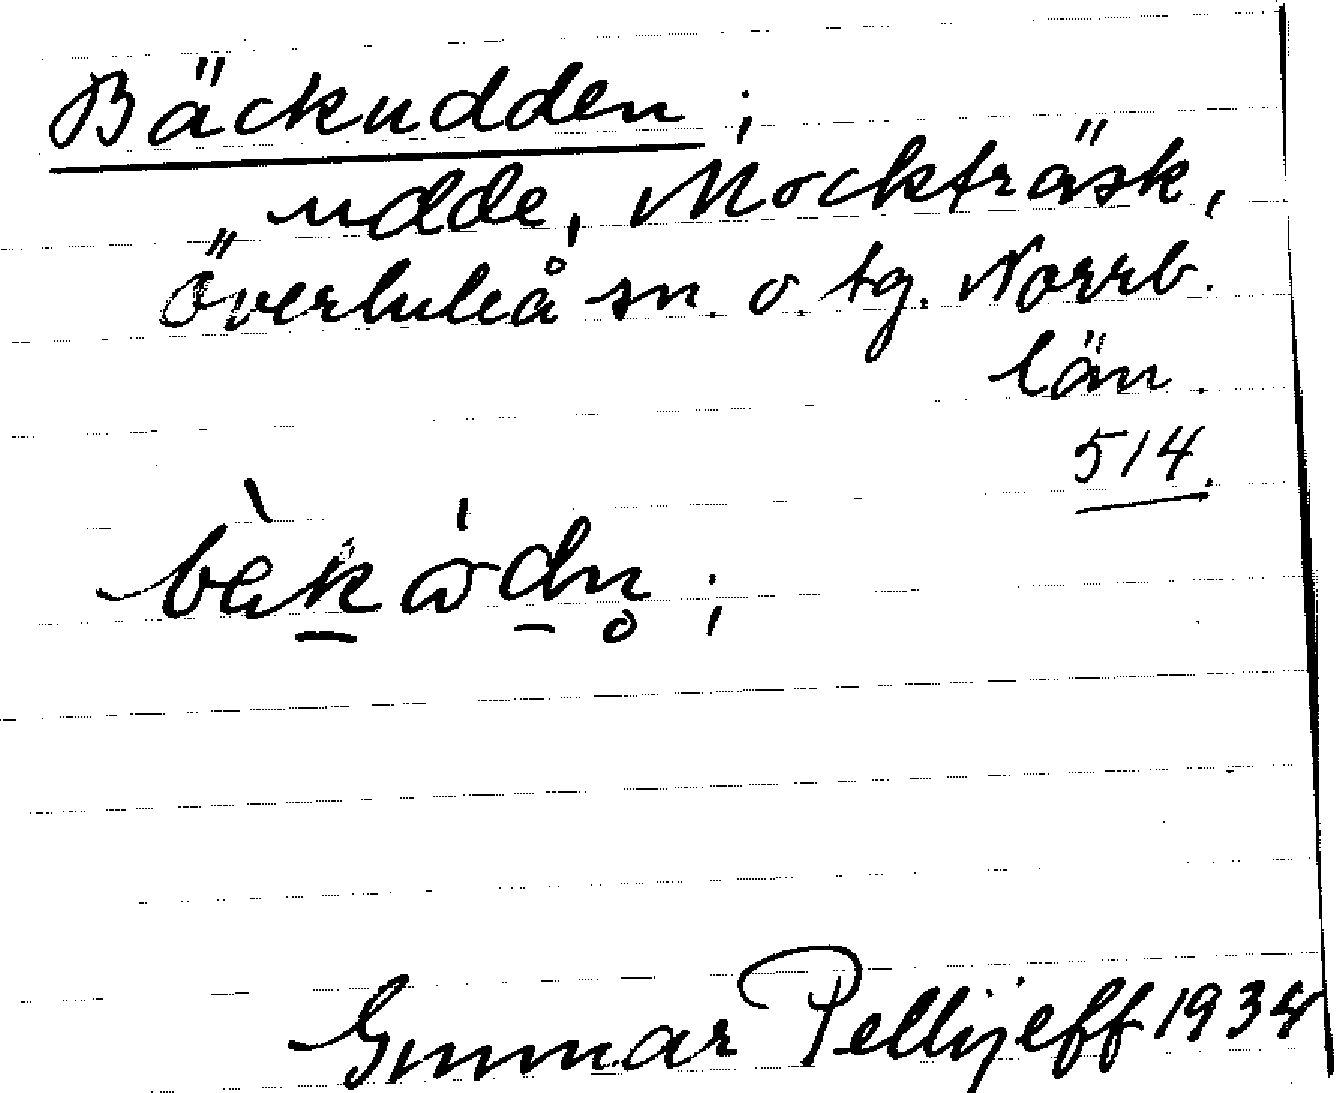 Bäckudden;
udde, Mockträsk,
Överluleå sn. o. tg. Norrb.
län.
514.
Gunnar Pellijeff 1934